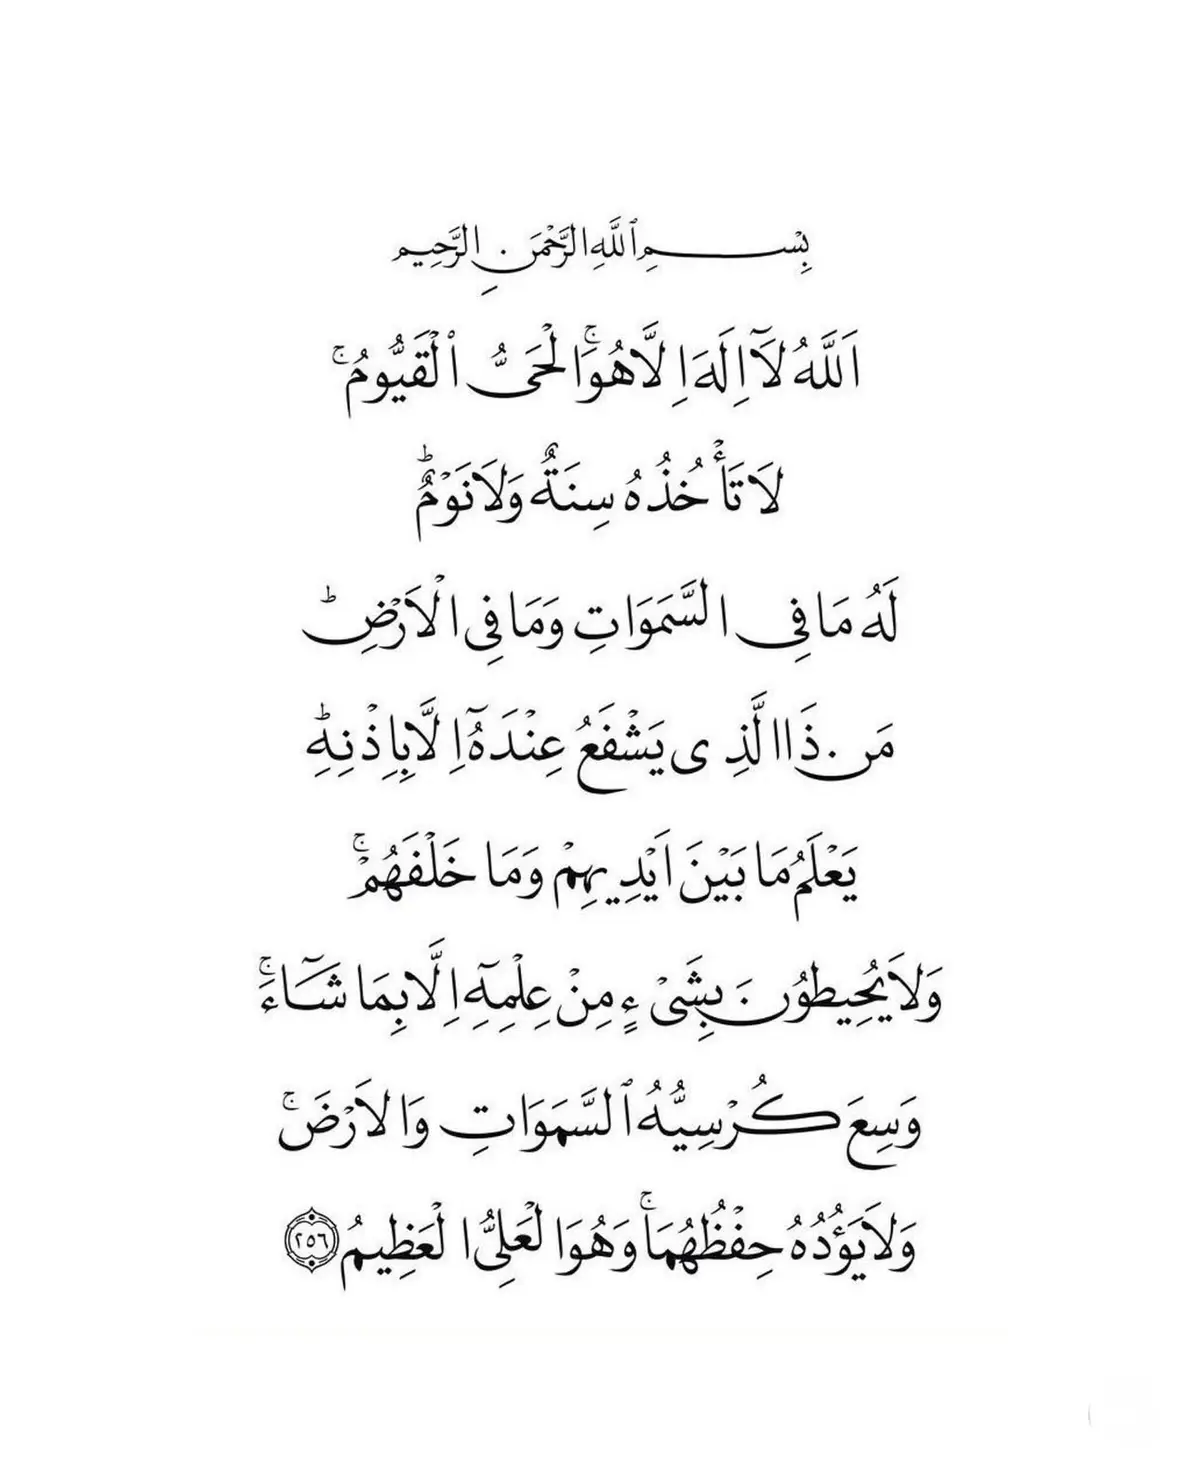 بِسْمِ ٱللَّهِ الرَّحْمَنِ الرَّحِيمِ
اَللَّهُ لَآ اِلَهَ اِلَّا هُوَۚ الْحَيُّ ٱلْقَيُّومُۚ
لَا تَأْخُذُهُ سِنَةٌ وَلَا نَوْمٌؕ
لَهُ مَا فِي السَّمَوَاتِ وَمَا فِي الْاَرْضِؕ
مَنْ ذَا الَّذِي يَشْفَعُ عِنْدَهُٓ اِلَّا بِاِذْنِهِؕ
يَعْلَمُ مَا بَيْنَ اَيْدِيهِمْ وَمَا خَلْفَهُمْۚ
وَلَا يُحِيطُونَ بِشَيْءٍ مِنْ عِلْمِهِٓ اِلَّا بِمَا شَآءَۚ
وَسِعَ كُرْسِيُّهُ ٱلسَّمَوَاتِ وَالْاَرْضَۚ
وَلَا يَؤُدُهُ حِفْظُهُمَاۚ وَهُوَ الْعَلِيُّ الْعَظِيمُ ٢٥٦